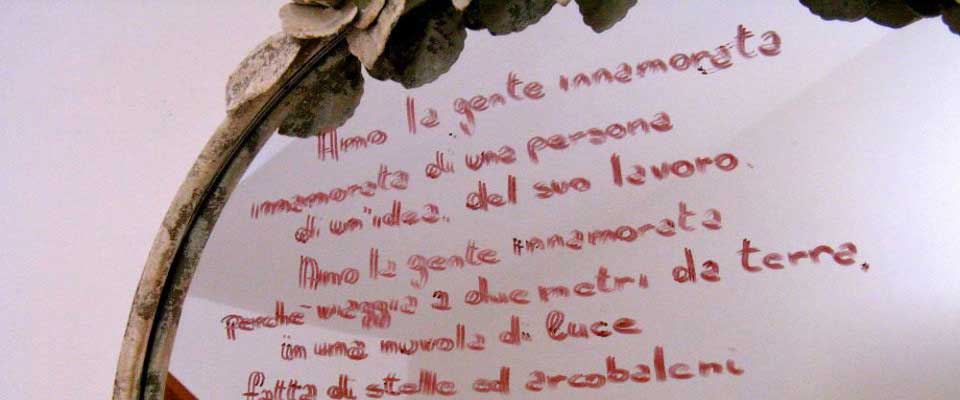 Amo la gente innamorata
innamorata di una persona
di un'idea. del suo lavoro.
Amo la gente innamorata
perché viaggia a due metri da terra,
in una nuvola di luce
fatta di stelle ed arcobaleni